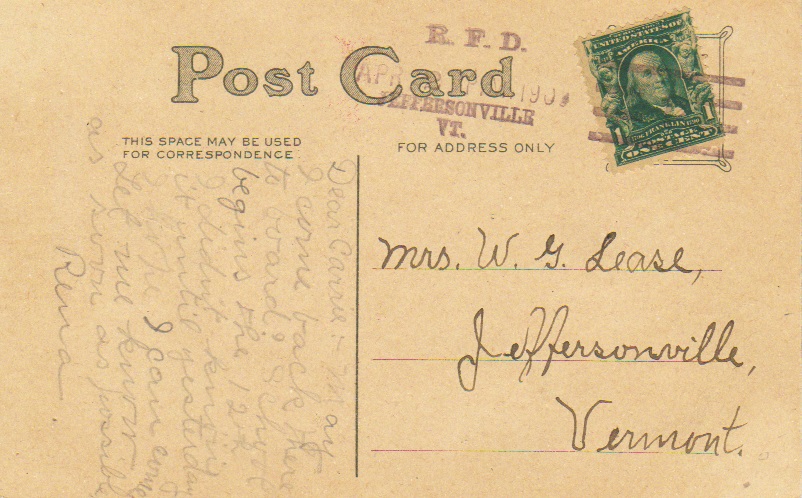 Post Card
R. F. D.
APR 1909
JEFFERSONVILLE
VT.
UNITED STATES OF
AMERICA
1 1
FRANKLIN
POSTAGE
ONE CENT
THIS SPACE MAY BE USED
FOR CORRESPONDENCE
FOR ADDRESS ONLY
Dear Carrie:- May
I come back there
to board? School
begins the 12th
I didn't know
it until yesterday
I hope I can come
Let me know
as soon as possible
Rena
Mrs. W. G. Lease,
Jeffersonville,
Vermont.